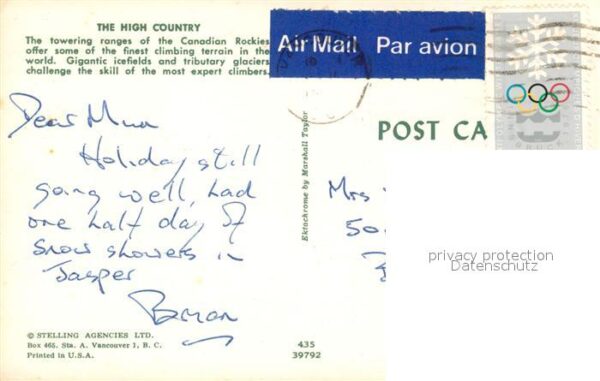 THE HIGH COUNTRY
The towering ranges of the Canadian Rockies
offer some of the finest climbing terrain in the
world. Gigantic icefields and tributary glaciers
challenge the skill of the most expert climbers.
Air Mail Par avion
Dear Mum
Holiday still
going well, had
one half day of
snow showers in
Jasper
Brian
© STELLING AGENCIES LTD.
Box 465. Sta. A. Vancouver 1, B. C.
Printed in U.S.A.
Ektachrome by Marshall Taylor
435
39792
POST CA
Mrs
50
privacy protection
Datenschutz